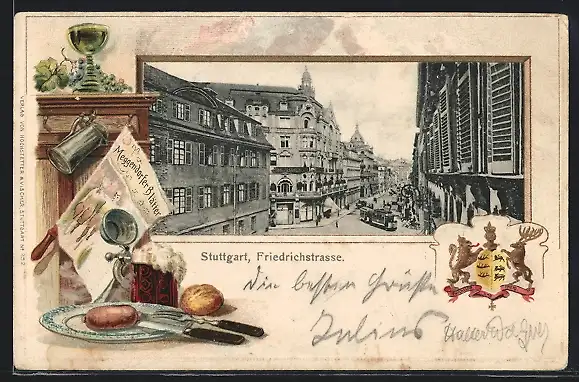 VERLAG VON HOCHSTETTER & VISCHER, STUTTGART
Meggendorfer Blätter
Stuttgart, Friedrichstrasse.
Die besten Grüße
Julius